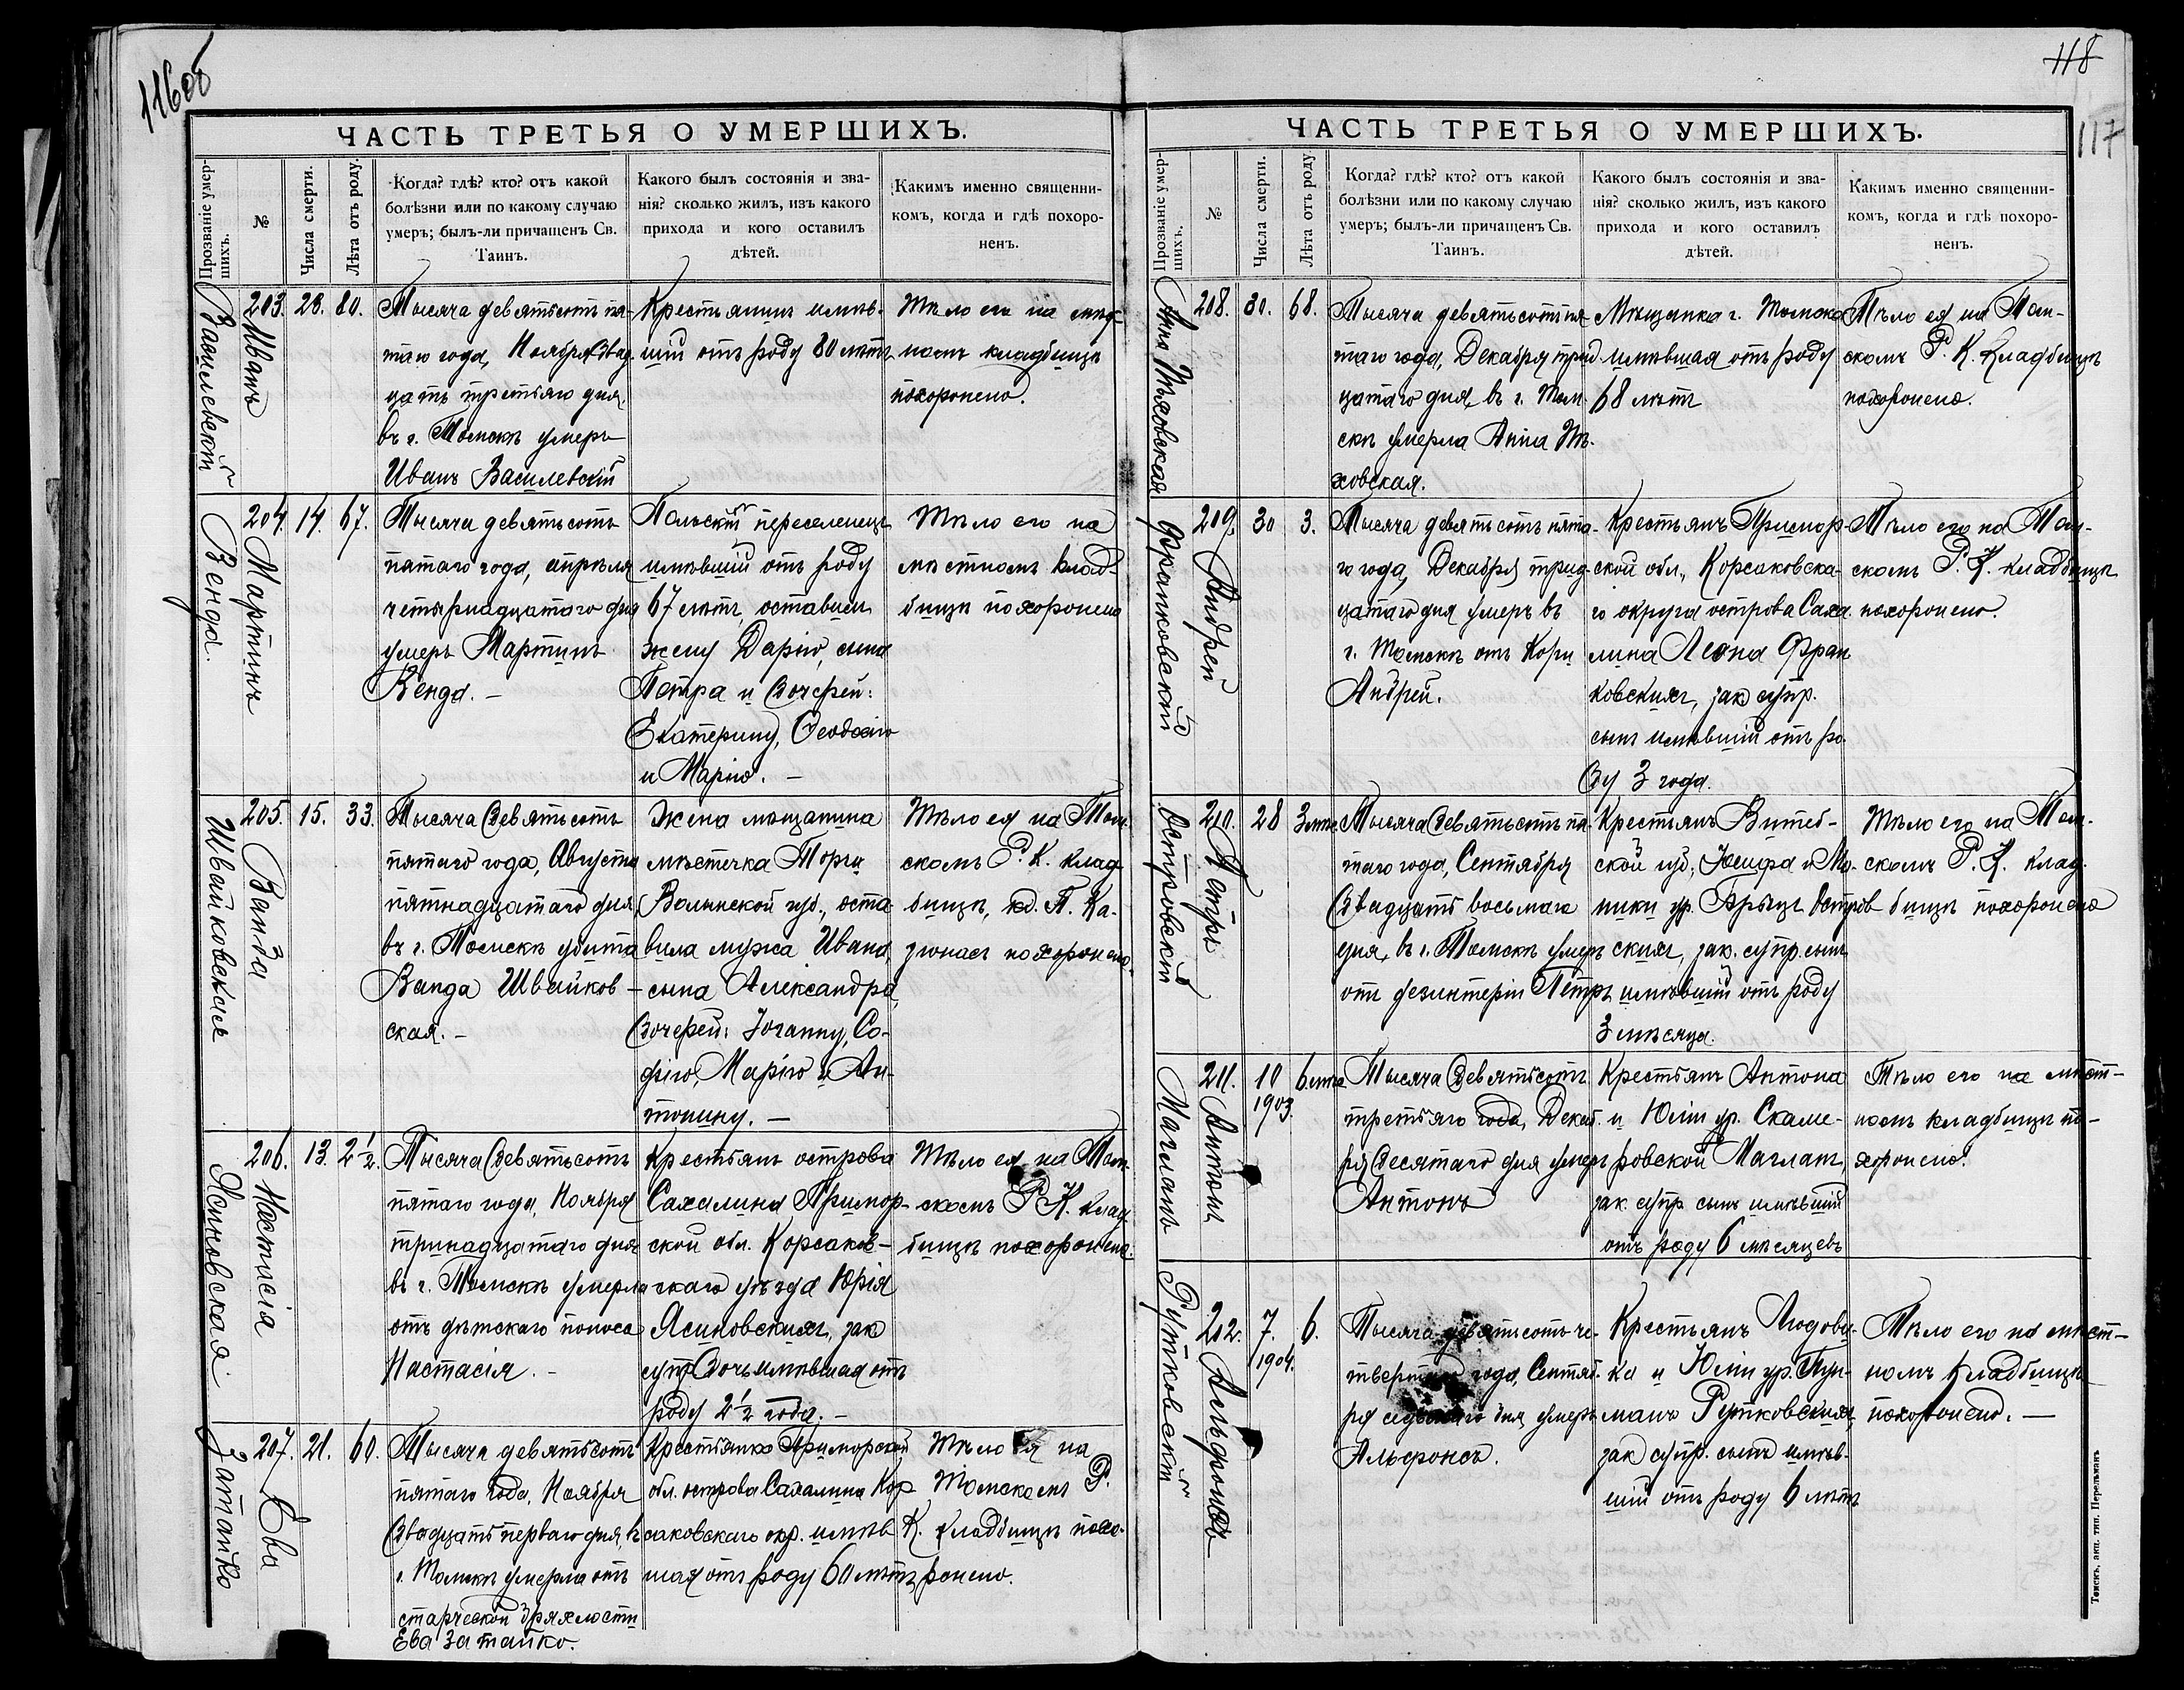 116об
ЧАСТЬ ТРЕТЬЯ О УМЕРШИХЪ.
Прозваніе умер-
шихъ.
№
Числа смерти.
Лѣта отъ роду.
Когда? гдѣ? кто? отъ какой
болѣзни или по какому случаю
умеръ; былъ-ли причащенъ Св.
Таинъ.
Какого былъ состоянія и зва-
нія? сколько жилъ, изъ какого
прихода и кого оставилъ
дѣтей.
Какимъ именно священни-
комъ, когда и гдѣ похоро-
ненъ.
Василевскій
203.
Иванъ
23.
80.
Тысяча девятьсотъ пя-
таго года, Ноября двад-
цать третьяго дня
въ г. Томскѣ умеръ
Иванъ Василевскій
Крестьянинъ имѣв-
шій отъ роду 80 лѣтъ
Тѣло его на мѣст-
номъ кладбищѣ
похоронено.
Венда.
204.
Мартинъ
14.
67.
Тысяча девятьсотъ
пятаго года, апрѣля
четырнадцатаго дня
умеръ Мартинъ
Венда. –
Польскій переселенецъ
имѣвшій отъ роду
67 лѣтъ, оставилъ
жену Дарію, сына
Петра и дочерей:
Екатерину, Ѳеодосію
и Марію. –
Тѣло его на
мѣстномъ клад-
бищѣ похоронено
Швайковская
205.
Ванда
15.
33.
Тысяча девятьсотъ
пятаго года, Августа
пятнадцатаго дня,
въ г. Томскѣ убита
Ванда Швайков-
ская. –
Жена мѣщанина
мѣстечка Торчи
Волынской губ., оста-
вила мужа Ивана,
сына Александра,
дочерей: Іоганну, Со-
фію, Марію и Ан-
тонину. –
Тѣло ея на Том-
скомъ Р. К. клад-
бищѣ, кс. П. Ка-
зюнасъ похоронено.
Ясиновская.
206.
Настасія
13.
2 ½.
Тысяча девятьсотъ
пятаго года, Ноября
тринадцатаго дня
въ г. Томскѣ умерла
отъ дѣтскаго поноса
Настасія. –
Крестьянъ острова
Сахалина Примор-
ской обл. Корсаков-
скаго уѣзда Юрія
Ясиновскихъ, зак
супр дочь имѣвшая отъ
роду 2 ½ года. –
Тѣло ея на Том-
скомъ Р. К. клад-
бищѣ похоронено.
Затайко
207.
Ева
21.
60.
Тысяча девятьсотъ
пятаго года, Ноября
двадцать перваго дня, въ
г. Томскѣ умерла отъ
старческой дряхлости
Ева Затайко.
Крестьянка Приморской
обл. острова Сахалина Кор-
саковскаго окр. имѣв-
шая отъ роду 60 лѣтъ
Тѣло ея на
Томскомъ Р.
К. кладбищѣ похо-
ронено.
118
117
ЧАСТЬ ТРЕТЬЯ О УМЕРШИХЪ.
Прозваніе умер-
шихъ.
№
Числа смерти.
Лѣта отъ роду
Когда? гдѣ? кто? отъ какой
болѣзни или по какому случаю
умеръ; былъ-ли причащенъ Св.
Таинъ.
Какого былъ состоянія и зва-
нія? сколько жилъ, изъ какого
прихода и кого оставилъ
дѣтей.
Какимъ именно священни-
комъ, когда и гдѣ похоро-
ненъ.
208.
30.
68.
Тысяча девятьсотъ пя-
таго года, Декабря трид-
цатаго дня, въ г. Том-
скѣ умерла Анна
ховская.
Мѣщанка г. Томска
имѣвшая отъ роду
68 лѣтъ
Тѣло ея на Том-
скомъ Р. К. Кладбищѣ
похоронено.
Франковскій
209.
Андрей
30
3.
Тысяча девятьсотъ пята-
го года, Декабря трид-
цатаго дня умеръ въ
г. Томскѣ отъ Кори
Андрей.
Крестьянъ Примор-
ской обл., Корсаковска-
го округа острова Саха-
лина Леона Фран
ковскихъ, зак супр.
сынъ имѣвшій отъ ро-
ду 3 года.
Тѣло его на Том-
скомъ Р. К. кладбищѣ
похоронено.
Островскій
210.
Петръ
28
3 мѣс
Тысяча девятьсотъ пя-
таго года, Сентября
двадцать восьмаго
дня, въ г. Томскѣ умеръ
отъ дезинтеріи Петръ
Крестьянъ Витеб-
ской губ., Іосифа и Мо-
ники ур. Островскихъ, зак. супр. сынъ
имѣвшій отъ роду
3 мѣсяца.
Тѣло его на Том-
скомъ Р. К. клад-
бищѣ похоронено
Магланъ
211.
Антонъ
10
1903.
6 мѣс
Тысяча девятьсотъ
третьяго года, Декаб-
ря десятаго дня умеръ
Антонъ
Крестьянъ Антона
и Юліи ур. Скаме-
ровской Магланъ,
зак. супр сынъ имѣвшій
отъ роду 6 мѣсяцевъ
Тѣло его на мѣст-
номъ кладбищѣ по-
хоронено.
Рутковскій
212.
Альфонсъ
7.
1904.
6.
Тысяча девятьсотъ че-
твертаго года, Сентяб-
ря седьмаго дня, умеръ
Альфонсъ.
Крестьянъ Людови-
ка и Юліи ур. Тул-
манъ Рутковскихъ,
зак супр. сынъ имѣв-
шій отъ роду 6 лѣтъ
Тѣло его на мѣст-
номъ кладбищѣ
похоронено. –
Томскъ, акц. тип. Перельманъ